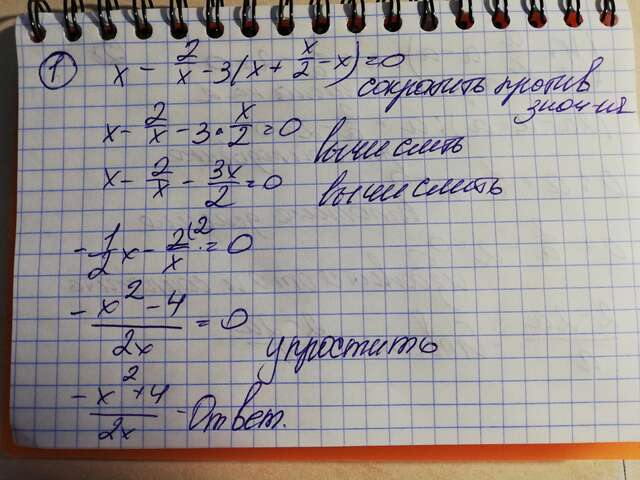 1 x - 2/x - 3(x + x/2 - x) = 0
сократить против знач-ия
x - 2/x - 3 * x/2 = 0 вычислить
x - 2/x - 3x/2 = 0 вычислить
- 1/2 x - 2(2/x = 0
- x² - 4/2x = 0
упростить
- x² + 4/2x - Ответ.